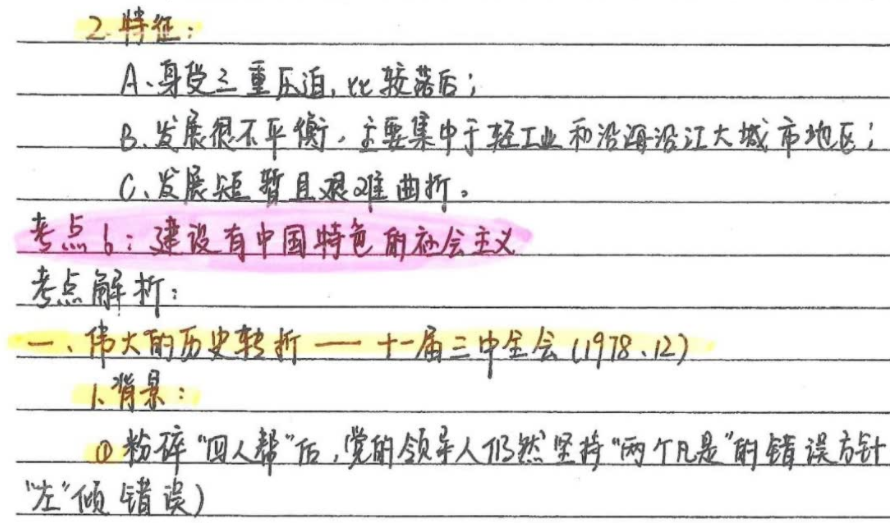 2.特征：
A、身受三重压迫，比较落后；
B、发展很不平衡，主要集中于轻工业和沿海沿江大城市地区；
C、发展短暂且艰难曲折。
考点6：建设有中国特色的社会主义
考点解析：
一、伟大的历史转折——十一届三中全会(1978.12)
1.背景：
①粉碎“四人帮”后，党的领导人仍然坚持“两个凡是”的错误方针
“左”倾错误）